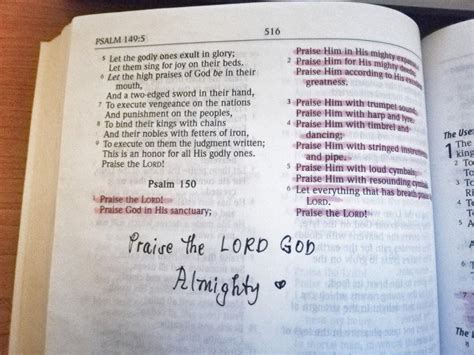 PSALM 149:5
516
5 Let the godly ones exult in glory;
Let them sing for joy on their beds.
6 Let the high praises of God be in their
mouth,
And a two-edged sword in their hand,
7 To execute vengeance on the nations
And punishment on the peoples,
8 To bind their kings with chains
And their nobles with fetters of iron,
9 To execute on them the judgment written;
This is an honor for all His godly ones.
Praise the LORD!
Psalm 150
1 Praise the LORD!
Praise God in His sanctuary;
Praise Him in His mighty
2 Praise Him for His mighty deeds;
Praise Him according to His
greatness.
3 Praise Him with trumpet sound;
Praise Him with harp and lyre.
4 Praise Him with timbrel and
dancing;
Praise Him with stringed
and pipe.
5 Praise Him with loud cymbals;
Praise Him with resounding
6 Let everything that has breath
LORD.
Praise the LORD!
Praise the LORD GOD
Almighty
The
1 The
king
2
3
4
5
6
7
The